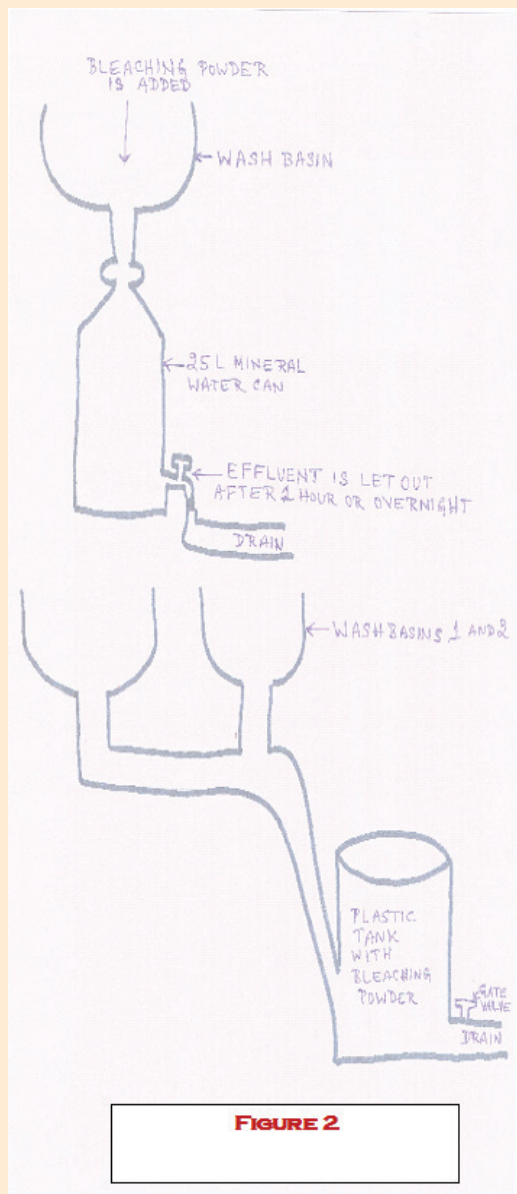 BLEACHING POWDER
IS ADDED
WASH BASIN
25 L MINERAL
WATER CAN
EFFLUENT IS LET OUT
AFTER 1 HOUR OR OVERNIGHT
DRAIN
WASH BASINS 1 AND 2
PLASTIC
TANK
WITH
BLEACHING
POWDER
GATE
VALVE
DRAIN
FIGURE 2